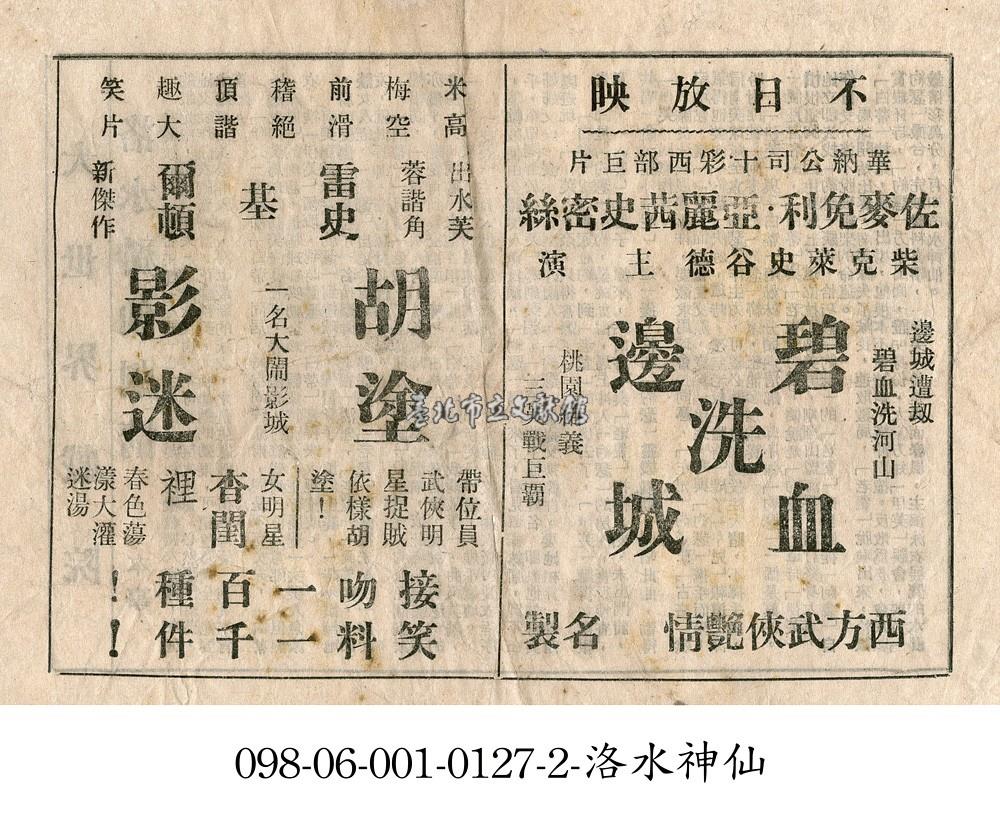 不日放映
華納公司十彩西部巨片
佐麥免利·亞麗茜史密絲
柴克萊史谷德主演
邊城遭刼
碧血洗河山
碧血
洗
邊城
桃園結義
三英戰巨霸
西方武俠艷情名製
米高
梅空
前滑
稽絕
頂諧
趣大
笑片
出水芙
蓉諧角
雷史
基
爾頓
新傑作
胡塗
一名大鬧影城
影迷
帶位員
武俠明
星捉賊
依樣胡
塗！
女明星
杳閨
裡
春色蕩
漾大灌
迷湯
接吻一百種！
笑料一千件！
臺北市立文獻館
098-06-001-0127-2-洛水神仙